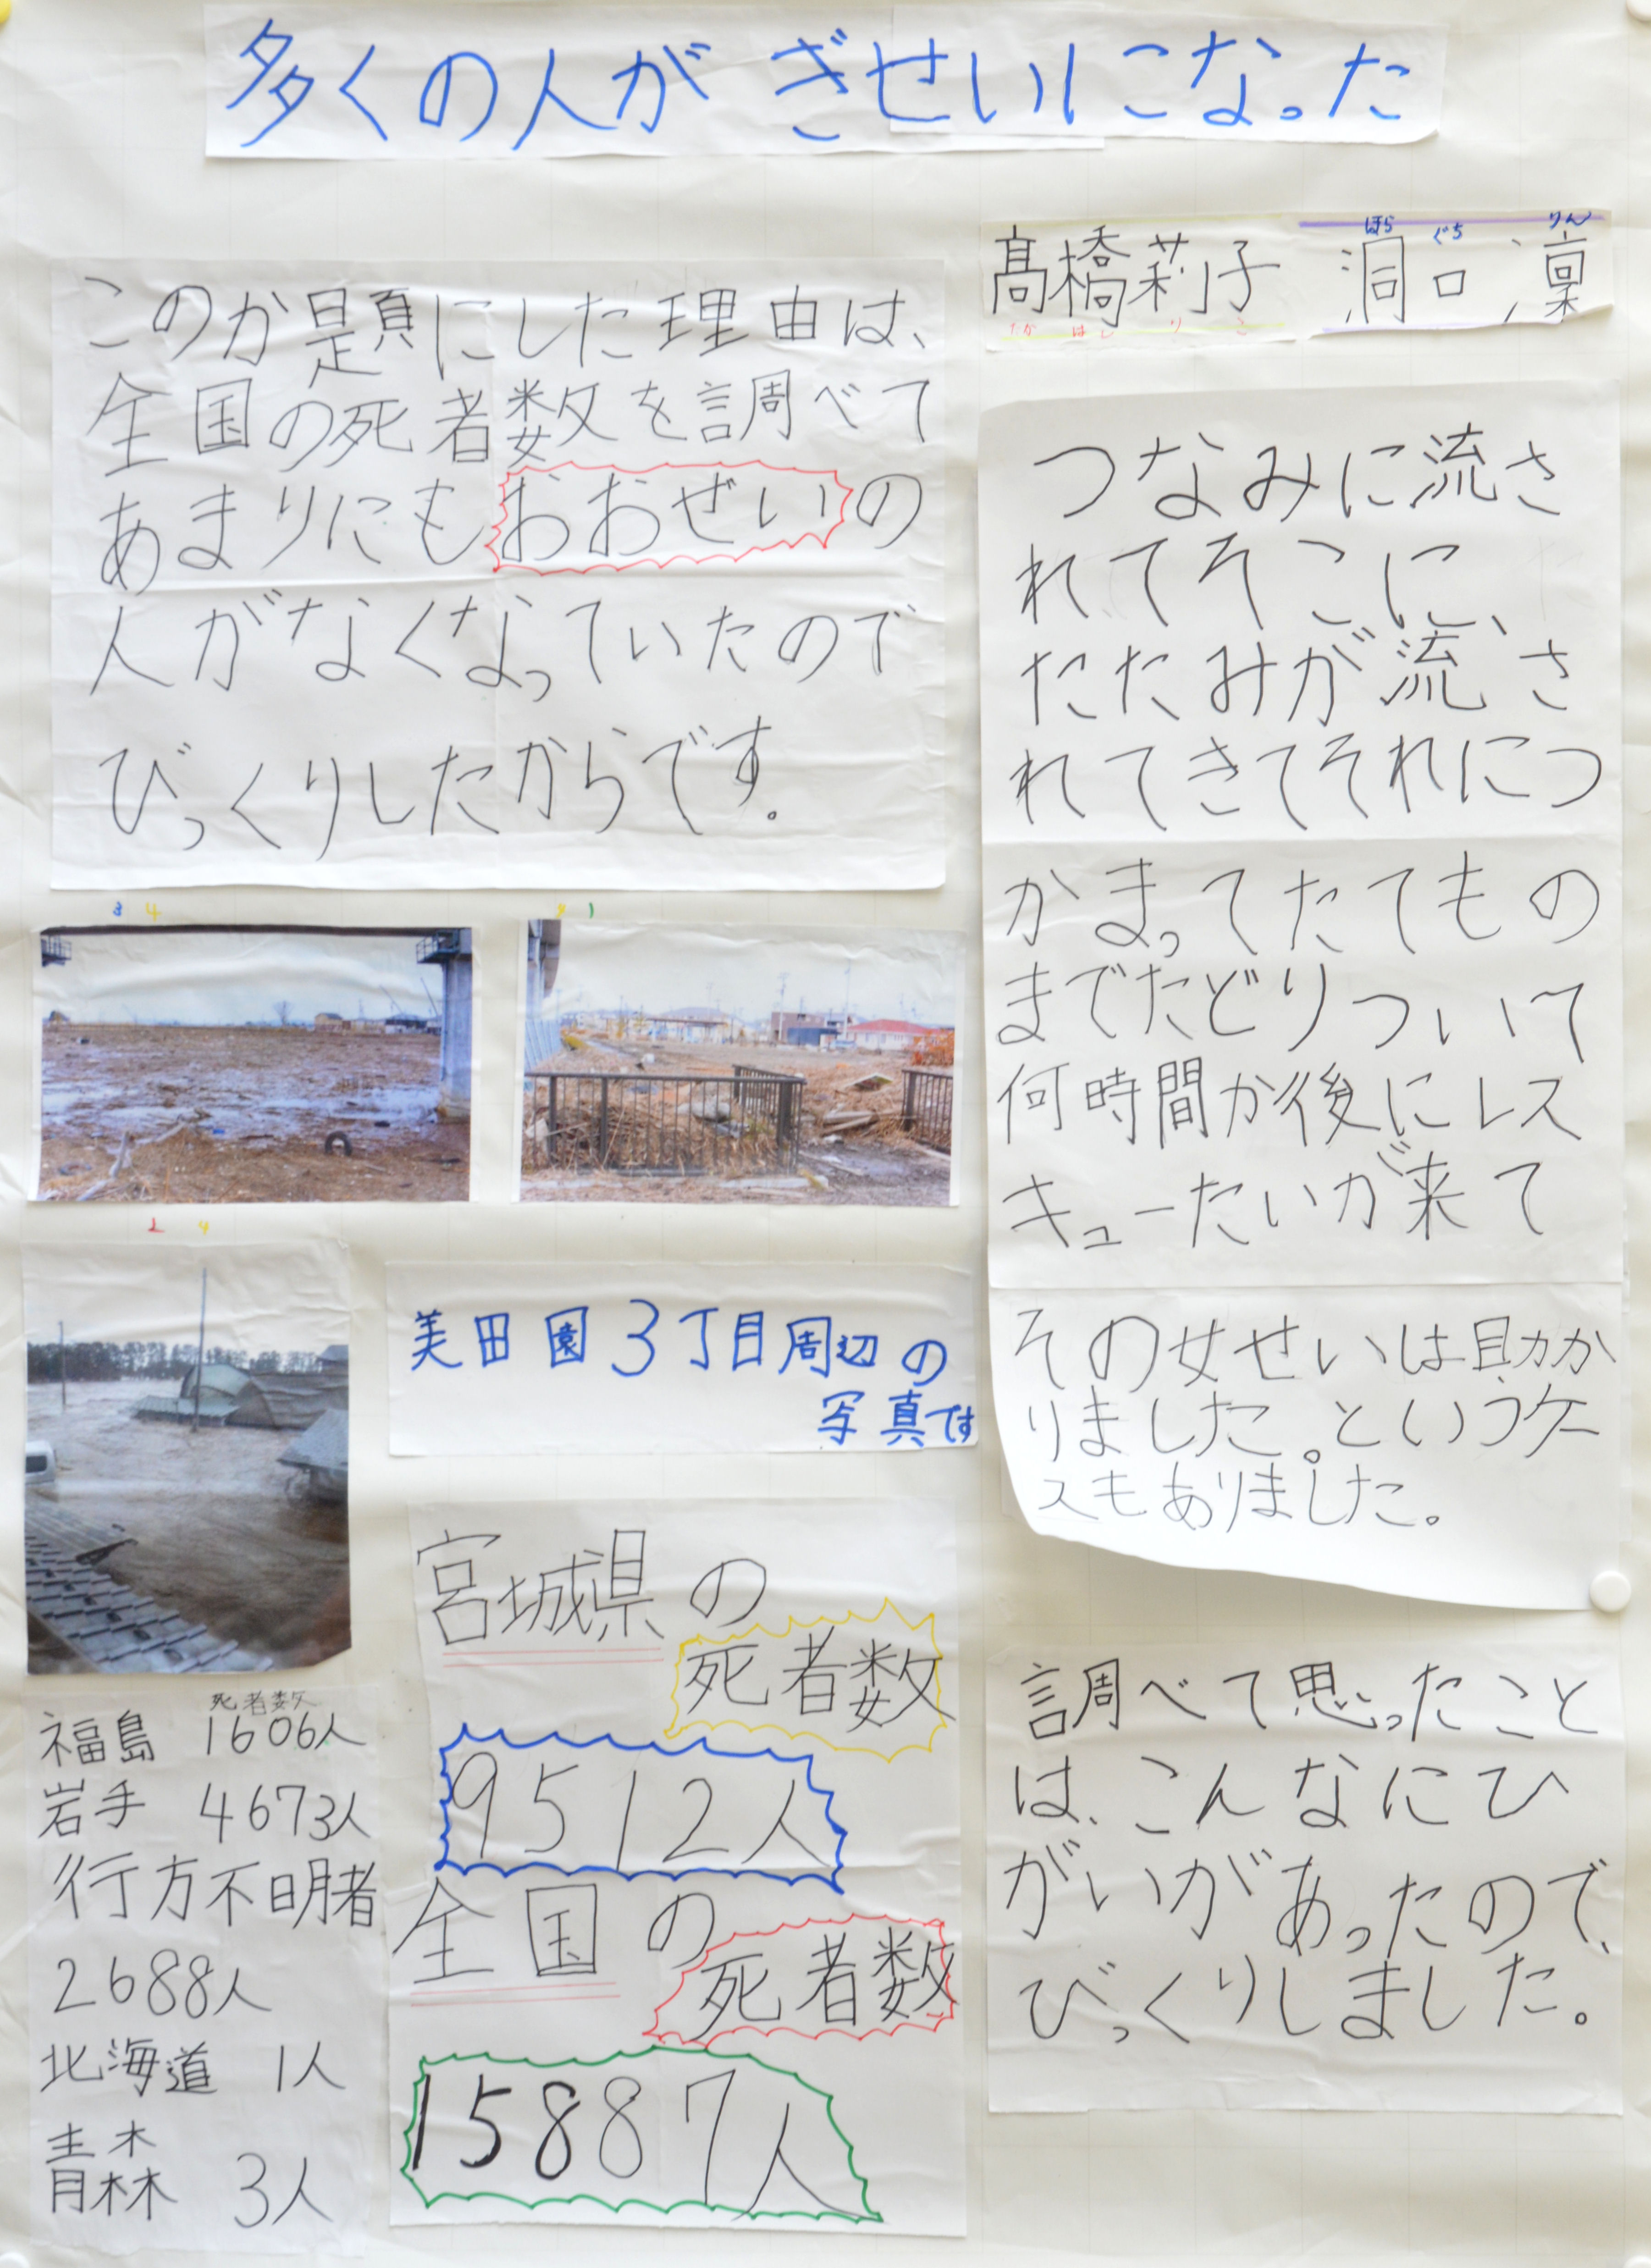 多くの人がぎせいになった
髙橋莉子
たか はし り こ
ほら ぐち りん
洞口 凛
このか題にした理由は、
全国の死者数を調べて
あまりにもおおぜいの
人がなくなっていたので
びっくりしたからです。
3 4
1
2 4
美田園3丁目周辺の
写真です
つなみに流さ
れてそこに、
たたみが流さ
れてきてそれにつ
かまってたてもの
までたどりついて
何時間か後にレス
キューたいが来て
その女せいは助か
りました。というケー
スもありました。
宮城県の
死者数
9512人
全国の
死者数
15887人
死者数
福島 1606人
岩手 4673人
行方不明者
2688人
北海道 1人
青森 3人
調べて思ったこと
は、こんなにひ
がいがあったので、
びっくりしました。